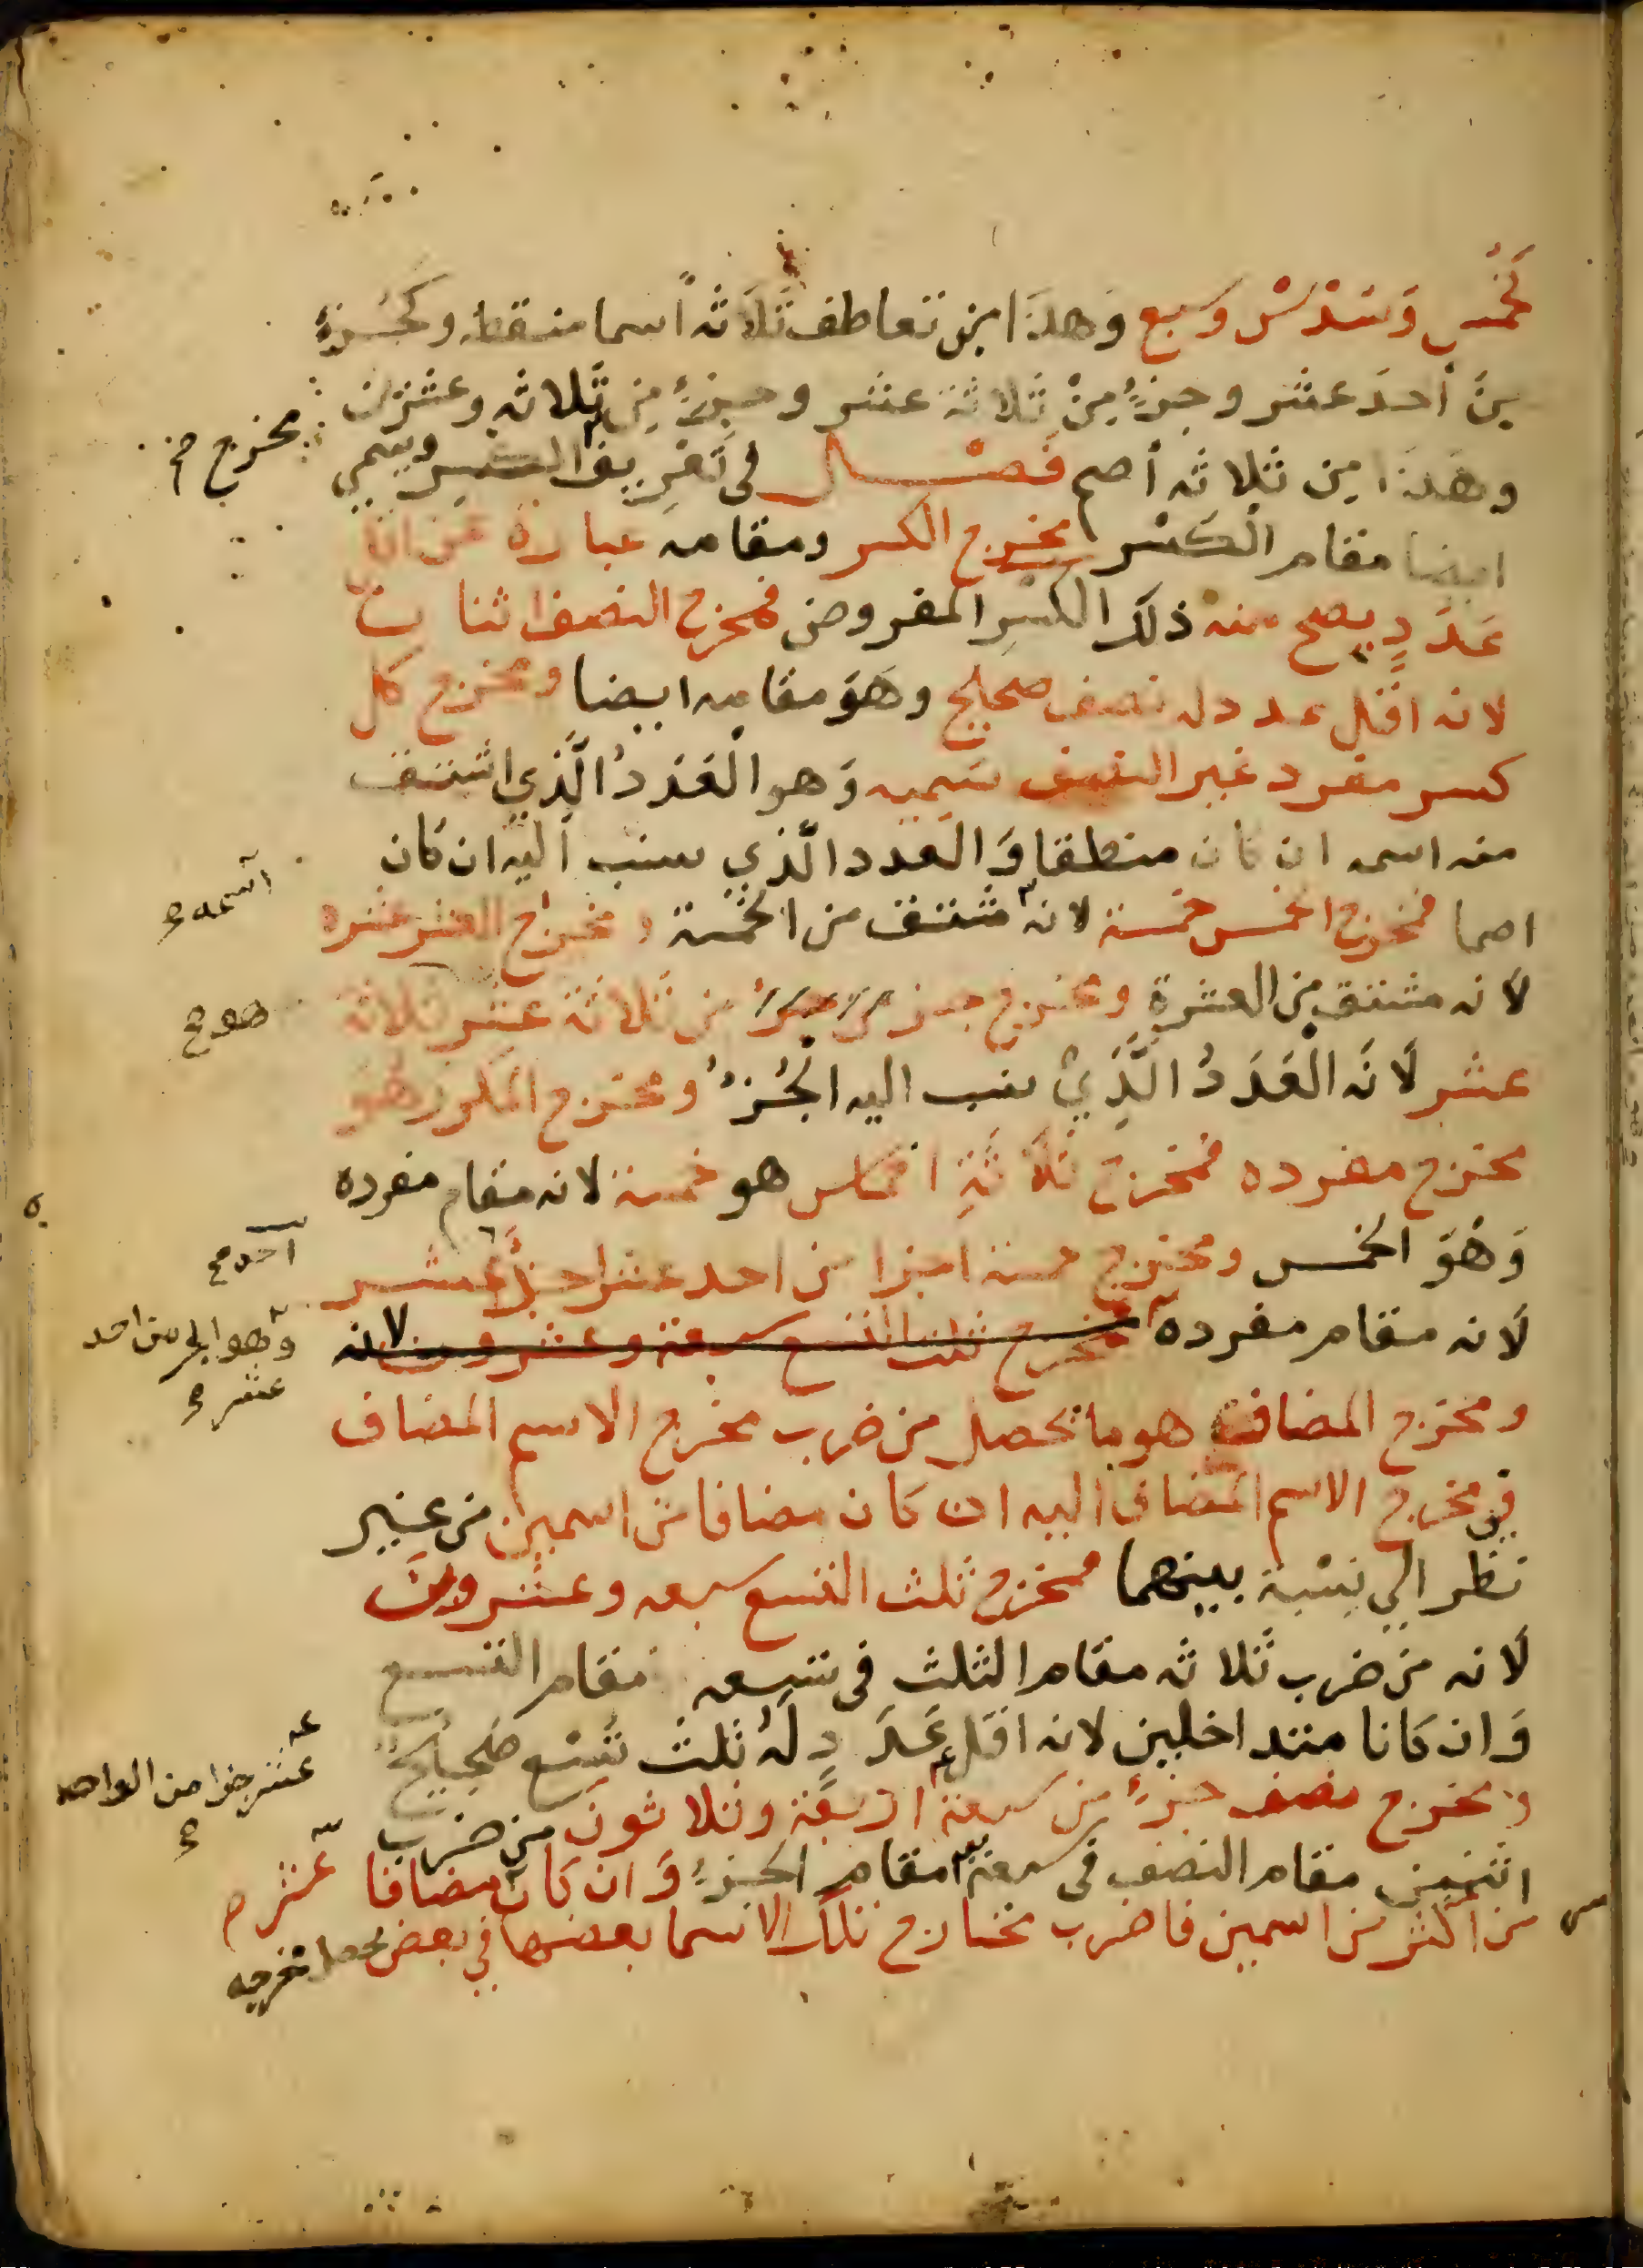 كخمس وَسُدْسْ وسبع وَهذَا من تعاطف ثَلَاثه اسما منطقه وكجُزءٍ
مِنَ أحدَ عشر وجزءٌ مِنْ ثلاثة عشر وجزءٌ مِن ثلاثه وعشرين
وهذا من ثلاثه أصم فَصْل في تَعْرِيف الكسر ويسمي
مخرج صح
ايضا مقام الكَسْر مخرج الكسر ومقامه عبارة عن اقل
عَدَدٍ يصح منه ذلك الكسْرِ المفروض فمخرج النصف اثنان
لانه اقل عدد له نصف صحيح وهَوَ مقامه ايضا ومخرج كل
كسر مفرد غير النصف سَمِيه وَهو الْعَدَدُ الَّذي اشتق
منه اسمه ان كان منطقا وَالعدد الَّذي ينسب اليه ان كان
اسمه صح
اصما فمخرج الخمس خمسة لانه مشتق من الخمْسة ومخرج العشر عشره
لانه مشتق من العشرة ومخرج جزء من ثلاثة عشر ثلاثة
هو صح
عشر لَانَه الْعَدَدُ الَّذِيْ ينسب اليه الجُزءُ ومخرج المكرر هو
مخرج مفرده فمخرج ثَلَاثَةِ اخماس هو خمسة لانه مقام مفرده
وَهُوَ الخمس ومخرج خمسة اجزا من احد عشر احد عشر
احد صح
لَانه مقام مفرده فمخرج ثلث التسع سبعة وعشرون لانه
وهو الجزء من احد
عشر صح
ومخرج المضاف هو ما يحصل من ضرب مخرج الاسم المضاف
في مخرج الاسم المضاف اليه ان كان مضافا من اسمين من غير
نظر الي نِسْبة بينهما فمخرج ثلث التسع سبعه وعشرون
لَانه من ضرب ثَلاثه مقام الثلث في تسعه مقام التسع
وَان كَانا متداخلين لانه اقل عَدَدٍ لَهُ ثلث تُسْع صَحِيْحٌ
ومخرج نصف جزءٌ من سبعة اربعَة وثلاثونَ من ضرب
عشر جزا من الواحد
اثنين مقام النصف في سبعة مقام الجزءْ وَان كَان مضافا
عشر صح
من اكثر من اسمين فاضرب مخارج تلك الاسما بعضها في بعض يحصل مخرجه